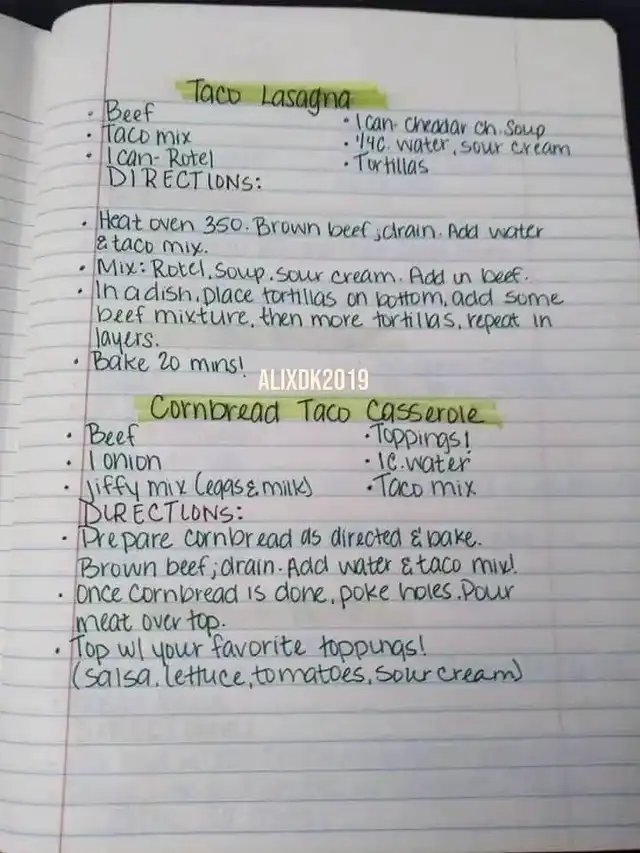 Taco Lasagna
• Beef
• Taco mix
• 1 can- Rotel
• 1 can- cheadar ch. Soup
• 1/4c. water, sour cream
• Tortillas
DIRECTIONS:
• Heat oven 350. Brown beef; drain. Add water
& taco mix.
• Mix: Rotel, soup, sour cream. Add in beef.
• In a dish, place tortillas on bottom, add some
beef mixture, then more tortillas, repeat in
layers.
• Bake 20 mins!
ALIXDK2019
Cornbread Taco Casserole
• Beef
• 1 onion
• Jiffy mix (eggs & milk)
• Toppings!
• 1c. water
• Taco mix
DIRECTIONS:
• Prepare cornbread as directed & bake.
Brown beef; drain. Add water & taco mix!
• Once cornbread is done, poke holes. Pour
meat over top.
• Top w/ your favorite toppings!
(salsa, lettuce, tomatoes, sour cream)